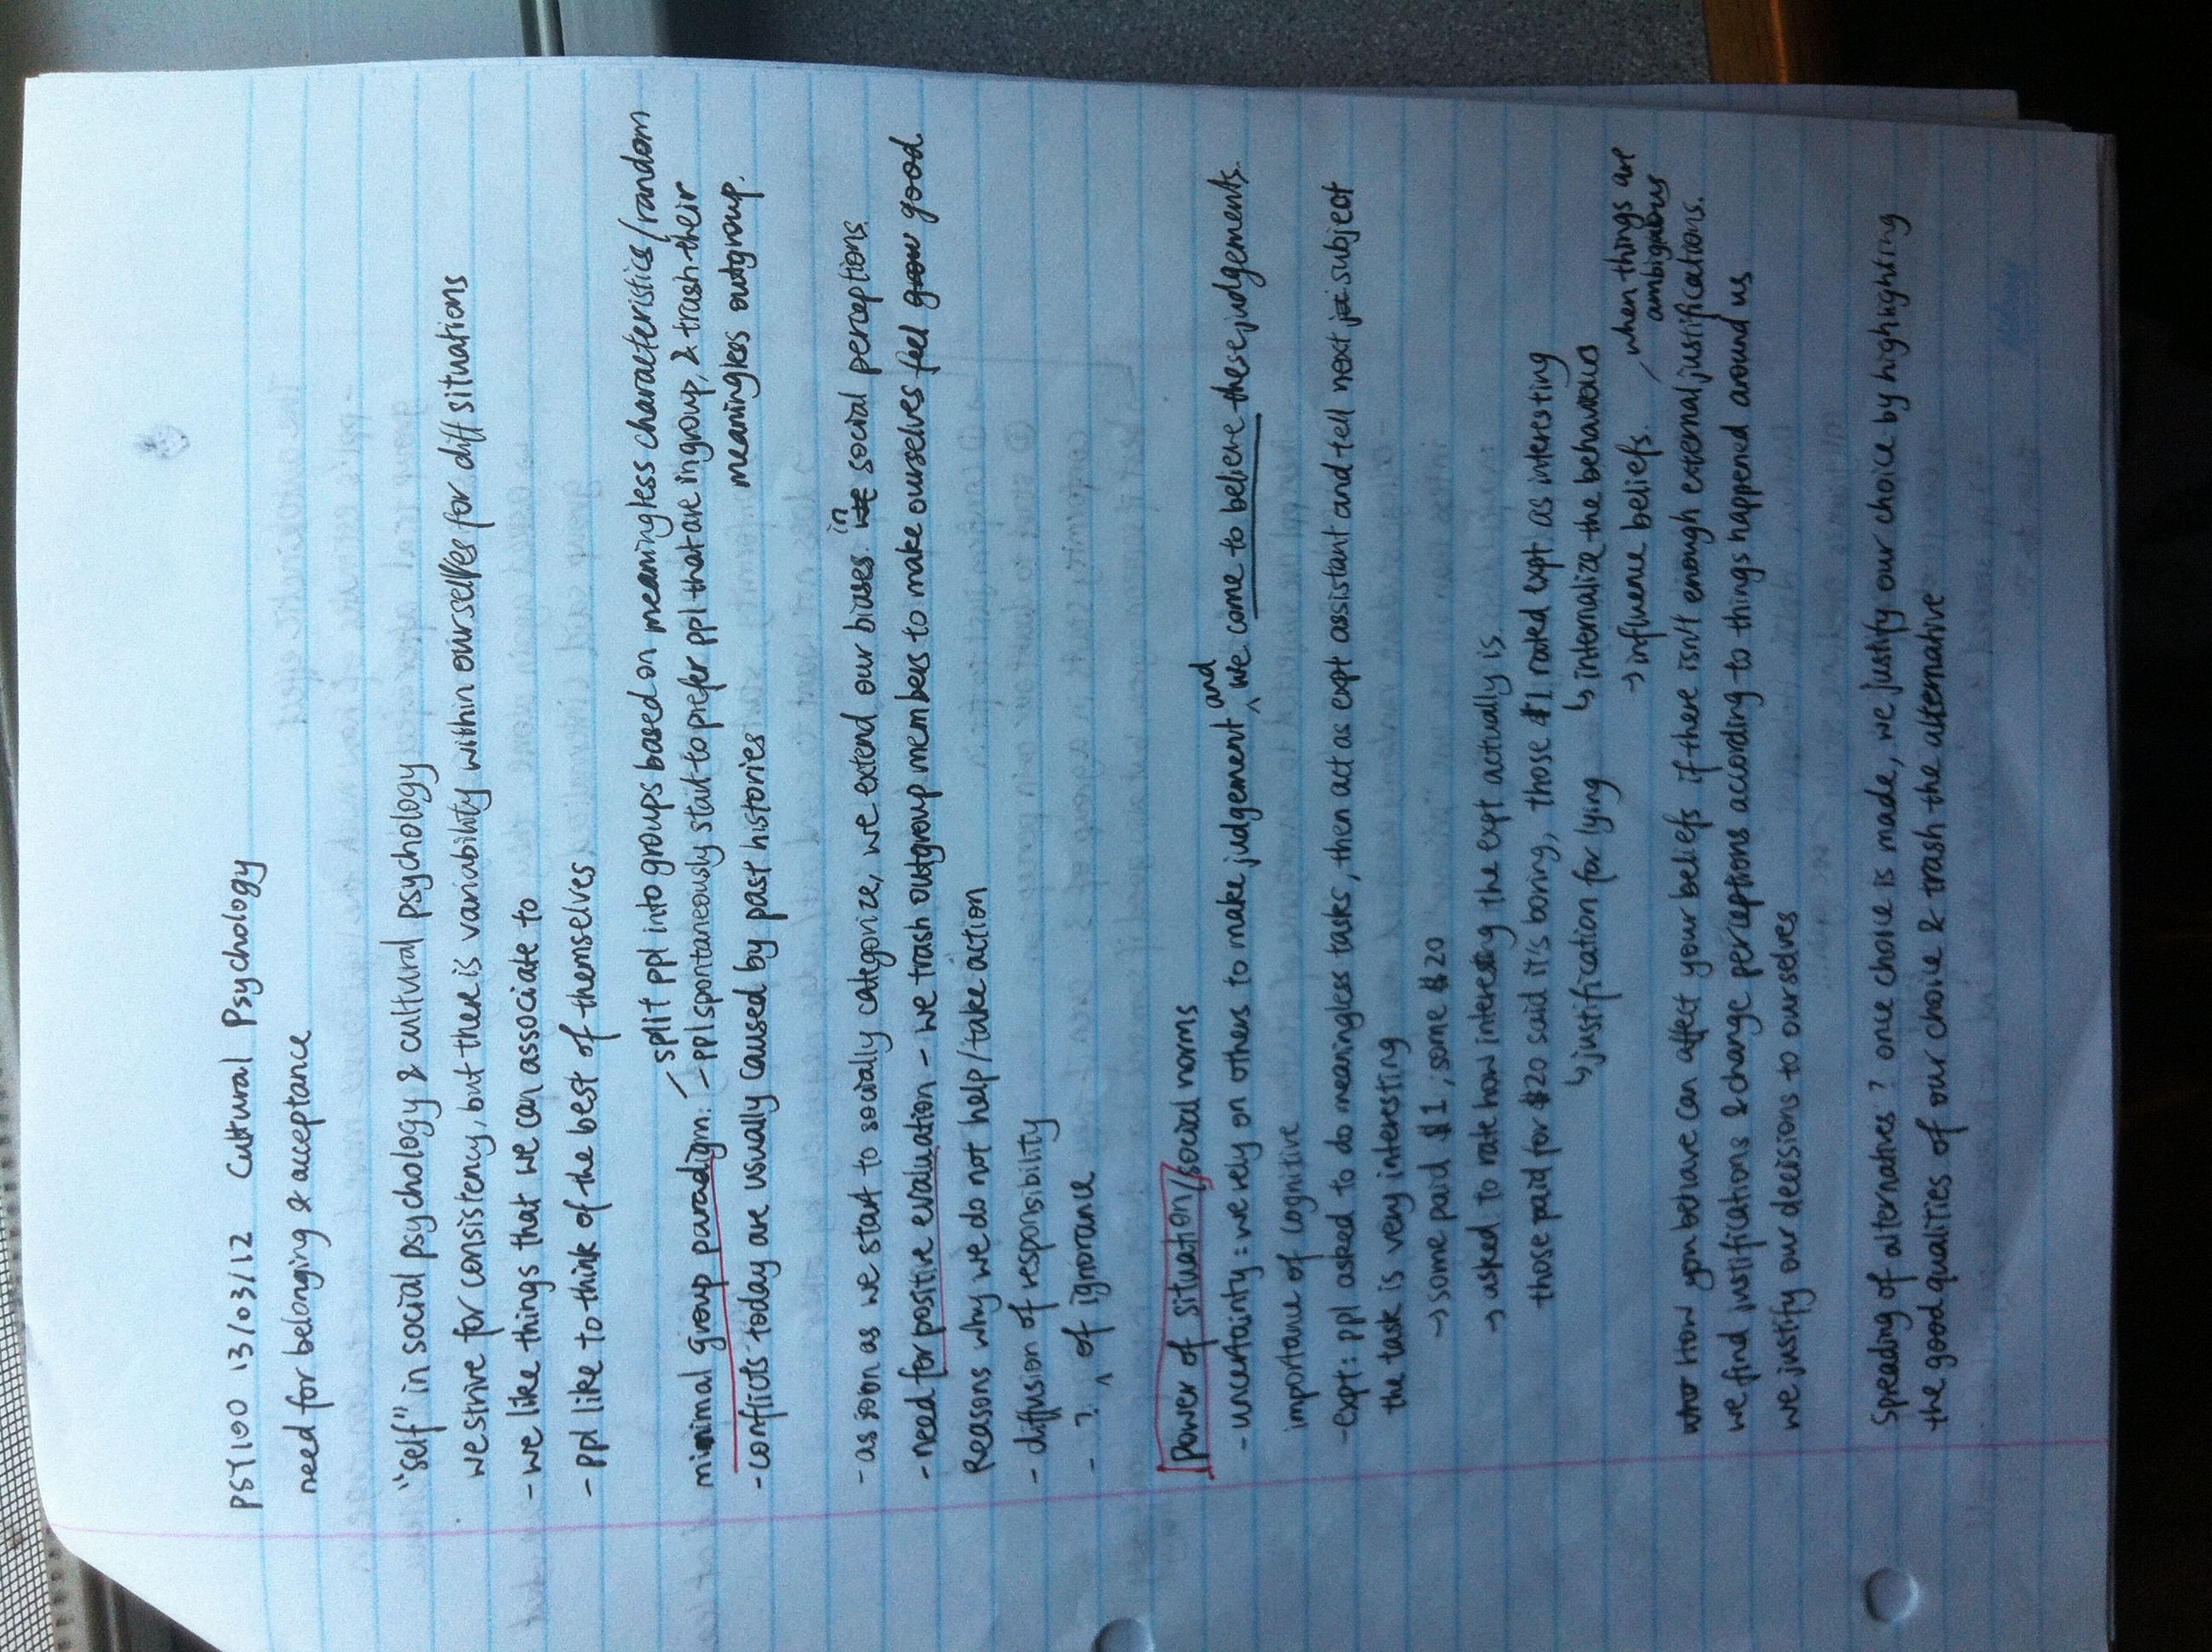 PSY100 13/03/12 Cultural Psychology
need for belonging & acceptance
"self" in social psychology & cultural psychology
we strive for consistency, but there is variability within ourselves for diff situations
- we like things that we can associate to
- ppl like to think of the best of themselves
split ppl into groups based on meaningless characteristics/random
minimal group paradigm: - ppl spontaneously start to prefer ppl that are ingroup, & trash their
meaningless outgroup.
- conflicts today are usually caused by past histories
- as soon as we start to socially categorize, we extend our biases in social perceptions.
- need for positive evaluation - we trash outgroup members to make ourselves feel good.
Reasons why we do not help/take action
- diffusion of responsibility
- ? of ignorance
Power of situation/social norms
- uncertainty: we rely on others to make judgement and we come to believe these judgements.
importance of cognitive
- expt: ppl asked to do meaningless tasks, then act as expt assistant and tell next subject
the task is very interesting
→ some paid $1, some $20
→ asked to rate how interesting the expt actually is.
those paid for $20 said it's boring, those $1 rated expt as interesting
↳ justification for lying ↳ internalize the behaviours
→ influence beliefs. when things are
ambiguous
How you behave can affect your beliefs if there isn't enough external justifications.
we find justifications & change perceptions according to things happened around us
we justify our decisions to ourselves
Spreading of alternatives? once choice is made, we justify our choice by highlighting
the good qualities of our choice & trash the alternative